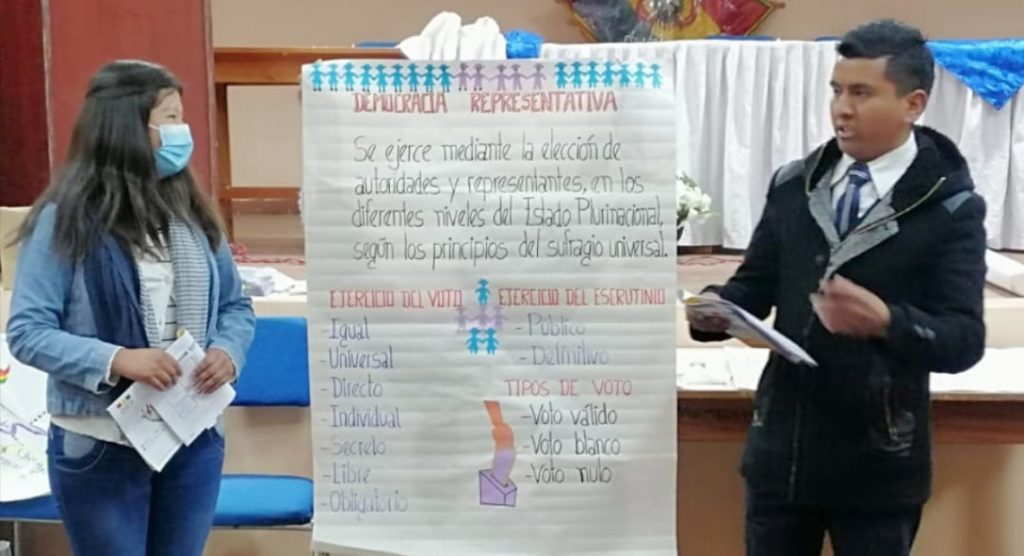 DEMOCRACIA REPRESENTATIVA
Se ejerce mediante la elección de
autoridades y representantes, en los
diferentes niveles del Estado Plurinacional,
según los principios del sufragio universal.
EJERCICIO DEL VOTO
- Igual
- Universal
- Directo
- Individual
- Secreto
- Libre
- Obligatorio
EJERCICIO DEL ESCRUTINIO
- Público
- Definitivo
TIPOS DE VOTO
- Voto válido
- Voto blanco
- Voto nulo